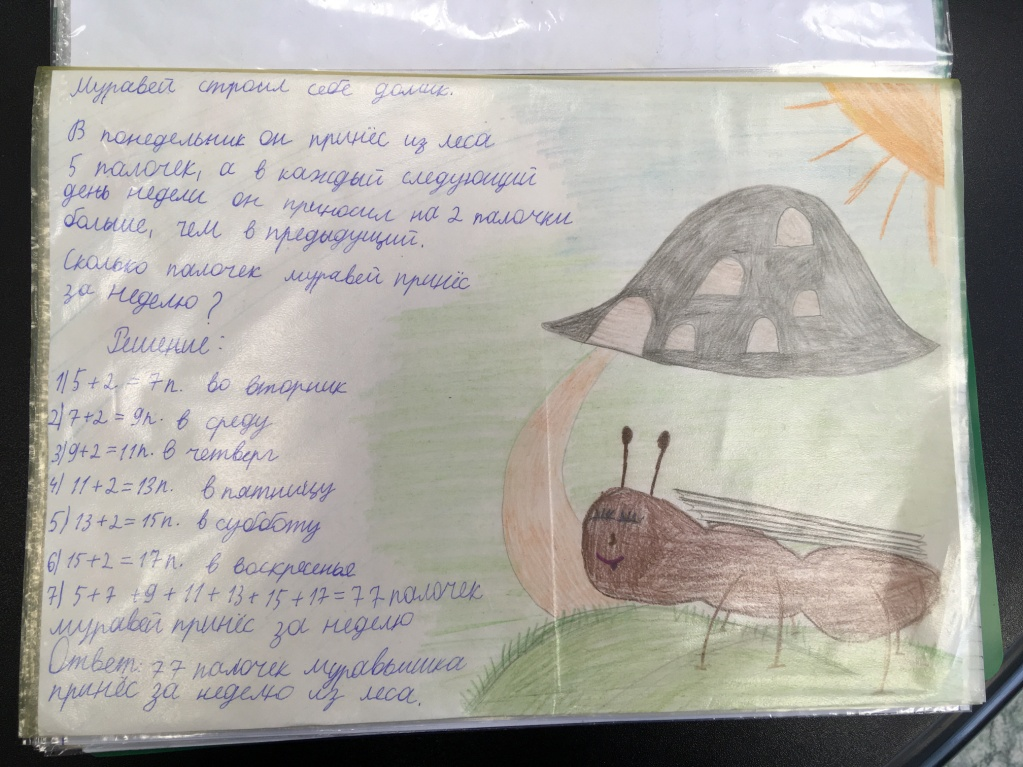 Муравей строил себе домик.
В понедельник он принёс из леса
5 палочек, а в каждый следующий
день недели он приносил на 2 палочки
больше, чем в предыдущий.
Сколько палочек муравей принёс
за неделю?
Решение:
1) 5+2 = 7п. во вторник
2) 7+2 = 9п. в среду
3) 9+2 = 11п. в четверг
4) 11+2 = 13п. в пятницу
5) 13+2 = 15п. в субботу
6) 15+2 = 17п. в воскресенье
7) 5+7 +9 + 11 + 13 + 15 + 17 = 77 палочек
муравей принёс за неделю
Ответ: 77 палочек муравьишка
принёс за неделю из леса.